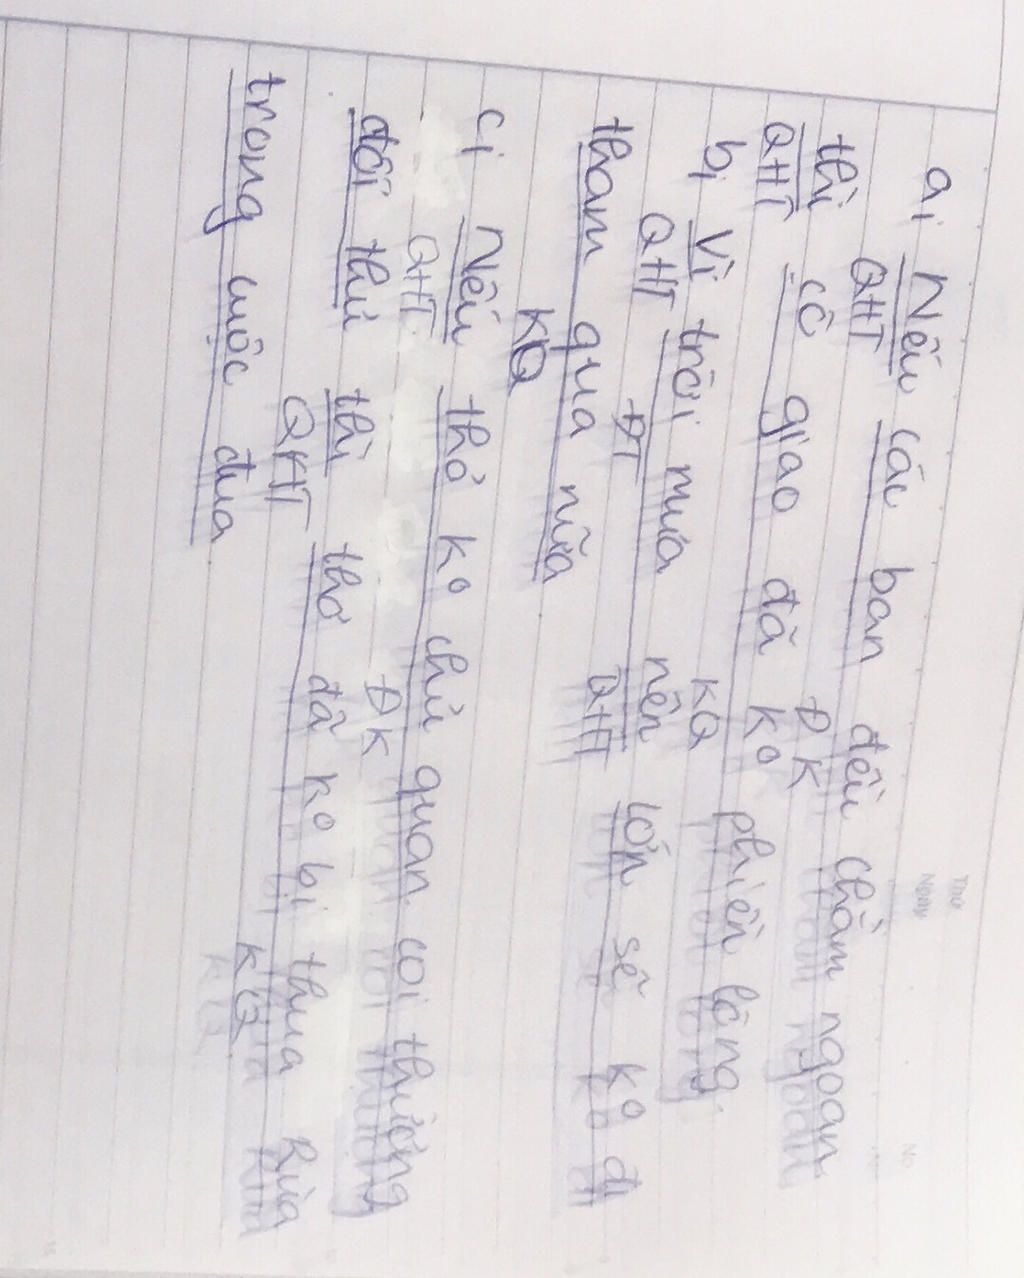 a, Nếu các bạn đều chăm ngoan
QHT ĐK
thì cô giáo đã ko phiền lòng
QHT KQ
b, Vì trời mưa nên lớn sẽ ko đi
QHT ĐT QHT
tham qua nữa
KQ
c, Nếu thỏ ko chủ quan coi thường
QHT ĐK
đối thủ thì thỏ đã ko bị thua Rùa
QHT KQ
trong cuộc đua